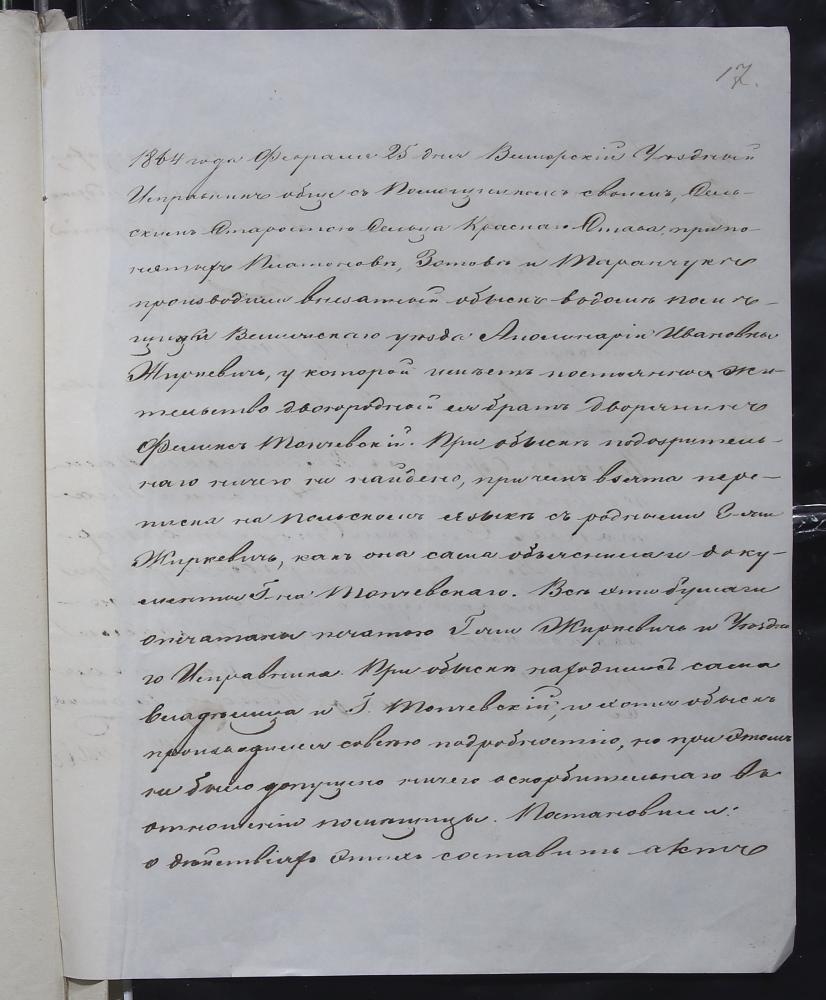 17.
1864 года Февраля 25 дня Велижскій Уѣздный
Исправникъ обще съ Помощникомъ своимъ, Сель-
скимъ Старостою Сельца Краснаго Става, при по-
нятыхъ Платоновѣ, Зотовѣ и Таранчукѣ
производили внезатный обыскъ въ домѣ помѣ-
щицы уѣзда Аполинаріи Ивановны
Жиркевичь, у которой имѣетъ постоянное жи-
тельство двоюродный ея братъ дворянинъ
Феликсъ Топчевскій. При обыскѣ подозритель-
наго ничего не найдено, при чемъ взята пере-
писка на Польскомъ языкѣ съ родными Г-жи
Жиркевичь, какъ она сама объяснила и доку-
менты Г-на Топчевскаго. Всѣ эти бумаги
опечатаны печатью Г-жи Жиркевичь и Уѣздна
го Исправника. При обыскѣ находились сама
владѣлица и Г. Топчевскій, и хотя обыскъ
производился со всею подробностію, но при этомъ
не было допущено ничего оскорбительнаго въ
отношеніи помѣщицы. Постановили:
о дѣйствіяхъ этихъ составить актъ